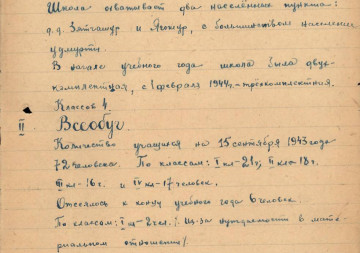 Школа охватывает два населённые пункта:
д.д. Зятчашур и Якшур, с большинством населения
удмурты.
В начале учебного года школа была двух-
комплектная, с 1 февраля 1944г. трёхкомплектная.
Классов 4.
II Всеобуч.
Количество учащихся на 15 сентября 1943 года
72 человека. По классам: I кл-21ч, II кл-18ч.
III кл-16ч. и IV кл-17 человек.
Отсеялось к концу учебного года 6 человек.
По классам: I кл-2чел. /: Из-за нуждаемости в мате-
риальном отношении/